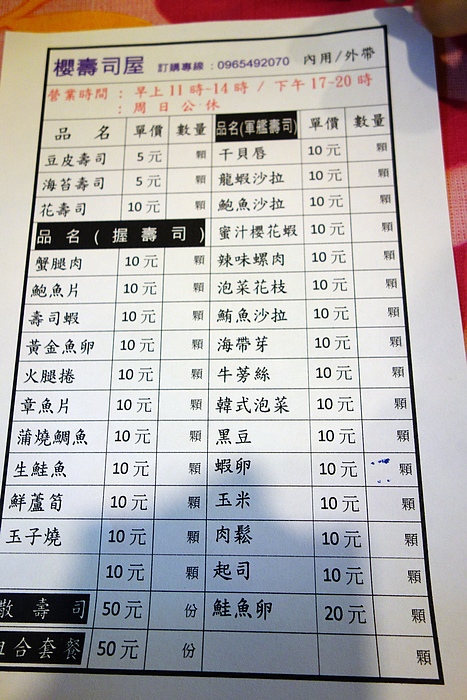 櫻壽司屋 訂購專線：0965492070 內用/外帶
營業時間：早上11時~14時 / 下午17~20時
：周日公休
品 名 單價 數量 品名(軍艦壽司) 單價 數量
豆皮壽司 5元 顆 干貝唇 10元 顆
海苔壽司 5元 顆 龍蝦沙拉 10元 顆
花壽司 10元 顆 鮑魚沙拉 10元 顆
品名(握壽司) 蜜汁櫻花蝦 10元 顆
蟹腿肉 10元 顆 辣味螺肉 10元 顆
鮑魚片 10元 顆 泡菜花枝 10元 顆
壽司蝦 10元 顆 鮪魚沙拉 10元 顆
黃金魚卵 10元 顆 海帶芽 10元 顆
火腿捲 10元 顆 牛蒡絲 10元 顆
章魚片 10元 顆 韓式泡菜 10元 顆
蒲燒鯛魚 10元 顆 黑豆 10元 顆
生鮭魚 10元 顆 蝦卵 10元 顆
鮮蘆筍 10元 顆 玉米 10元 顆
玉子燒 10元 顆 肉鬆 10元 顆
10元 顆 起司 10元 顆
散壽司 50元 份 鮭魚卵 20元 顆
合套餐 50元 份 顆